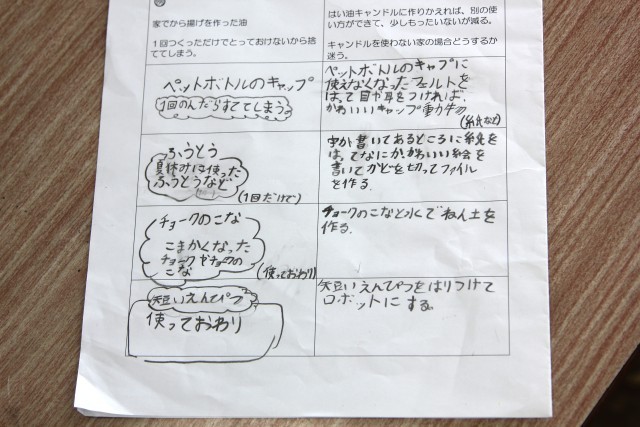 家でから揚げを作った油
１回つくっただけでとっておけないから捨
ててしまう。
はい油キャンドルに作りかえれば、別の使
い方ができて、少しもったいないが減る。
キャンドルを使わない家の場合どうするか
迷う。
ペットボトルのキャップ
1回のんだらすててしまう
ペットボトルのキャプに
使えなくなったフェルトを
はって目や耳をつければ、
かわいいキャップ動物
(紙など)
ふうとう
夏休みに使った
ふうとうなど
(1回だけで)
字が書いてあるところに紙を
は、てなにか、かわいい絵を
書いてかどを切ってファイル
を作る.
チョークのこな
こまかくなった
チョークやチョークの
こな
(使っておわり)
チョークのこなと水でねん土を
作る.
短いえんぴつ
使っておわり
短いえんぴつをはりつけて
ロボットにする。